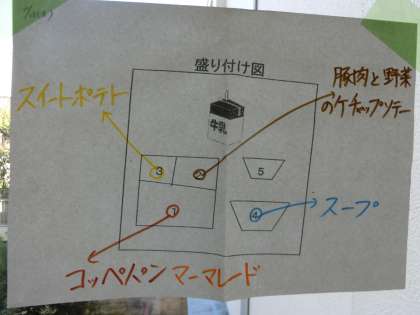 盛り付け図
スイートポテト
豚肉と野菜
のケチャップソテー
牛乳
③
②
5
①
④
スープ
コッペパン マーマレード